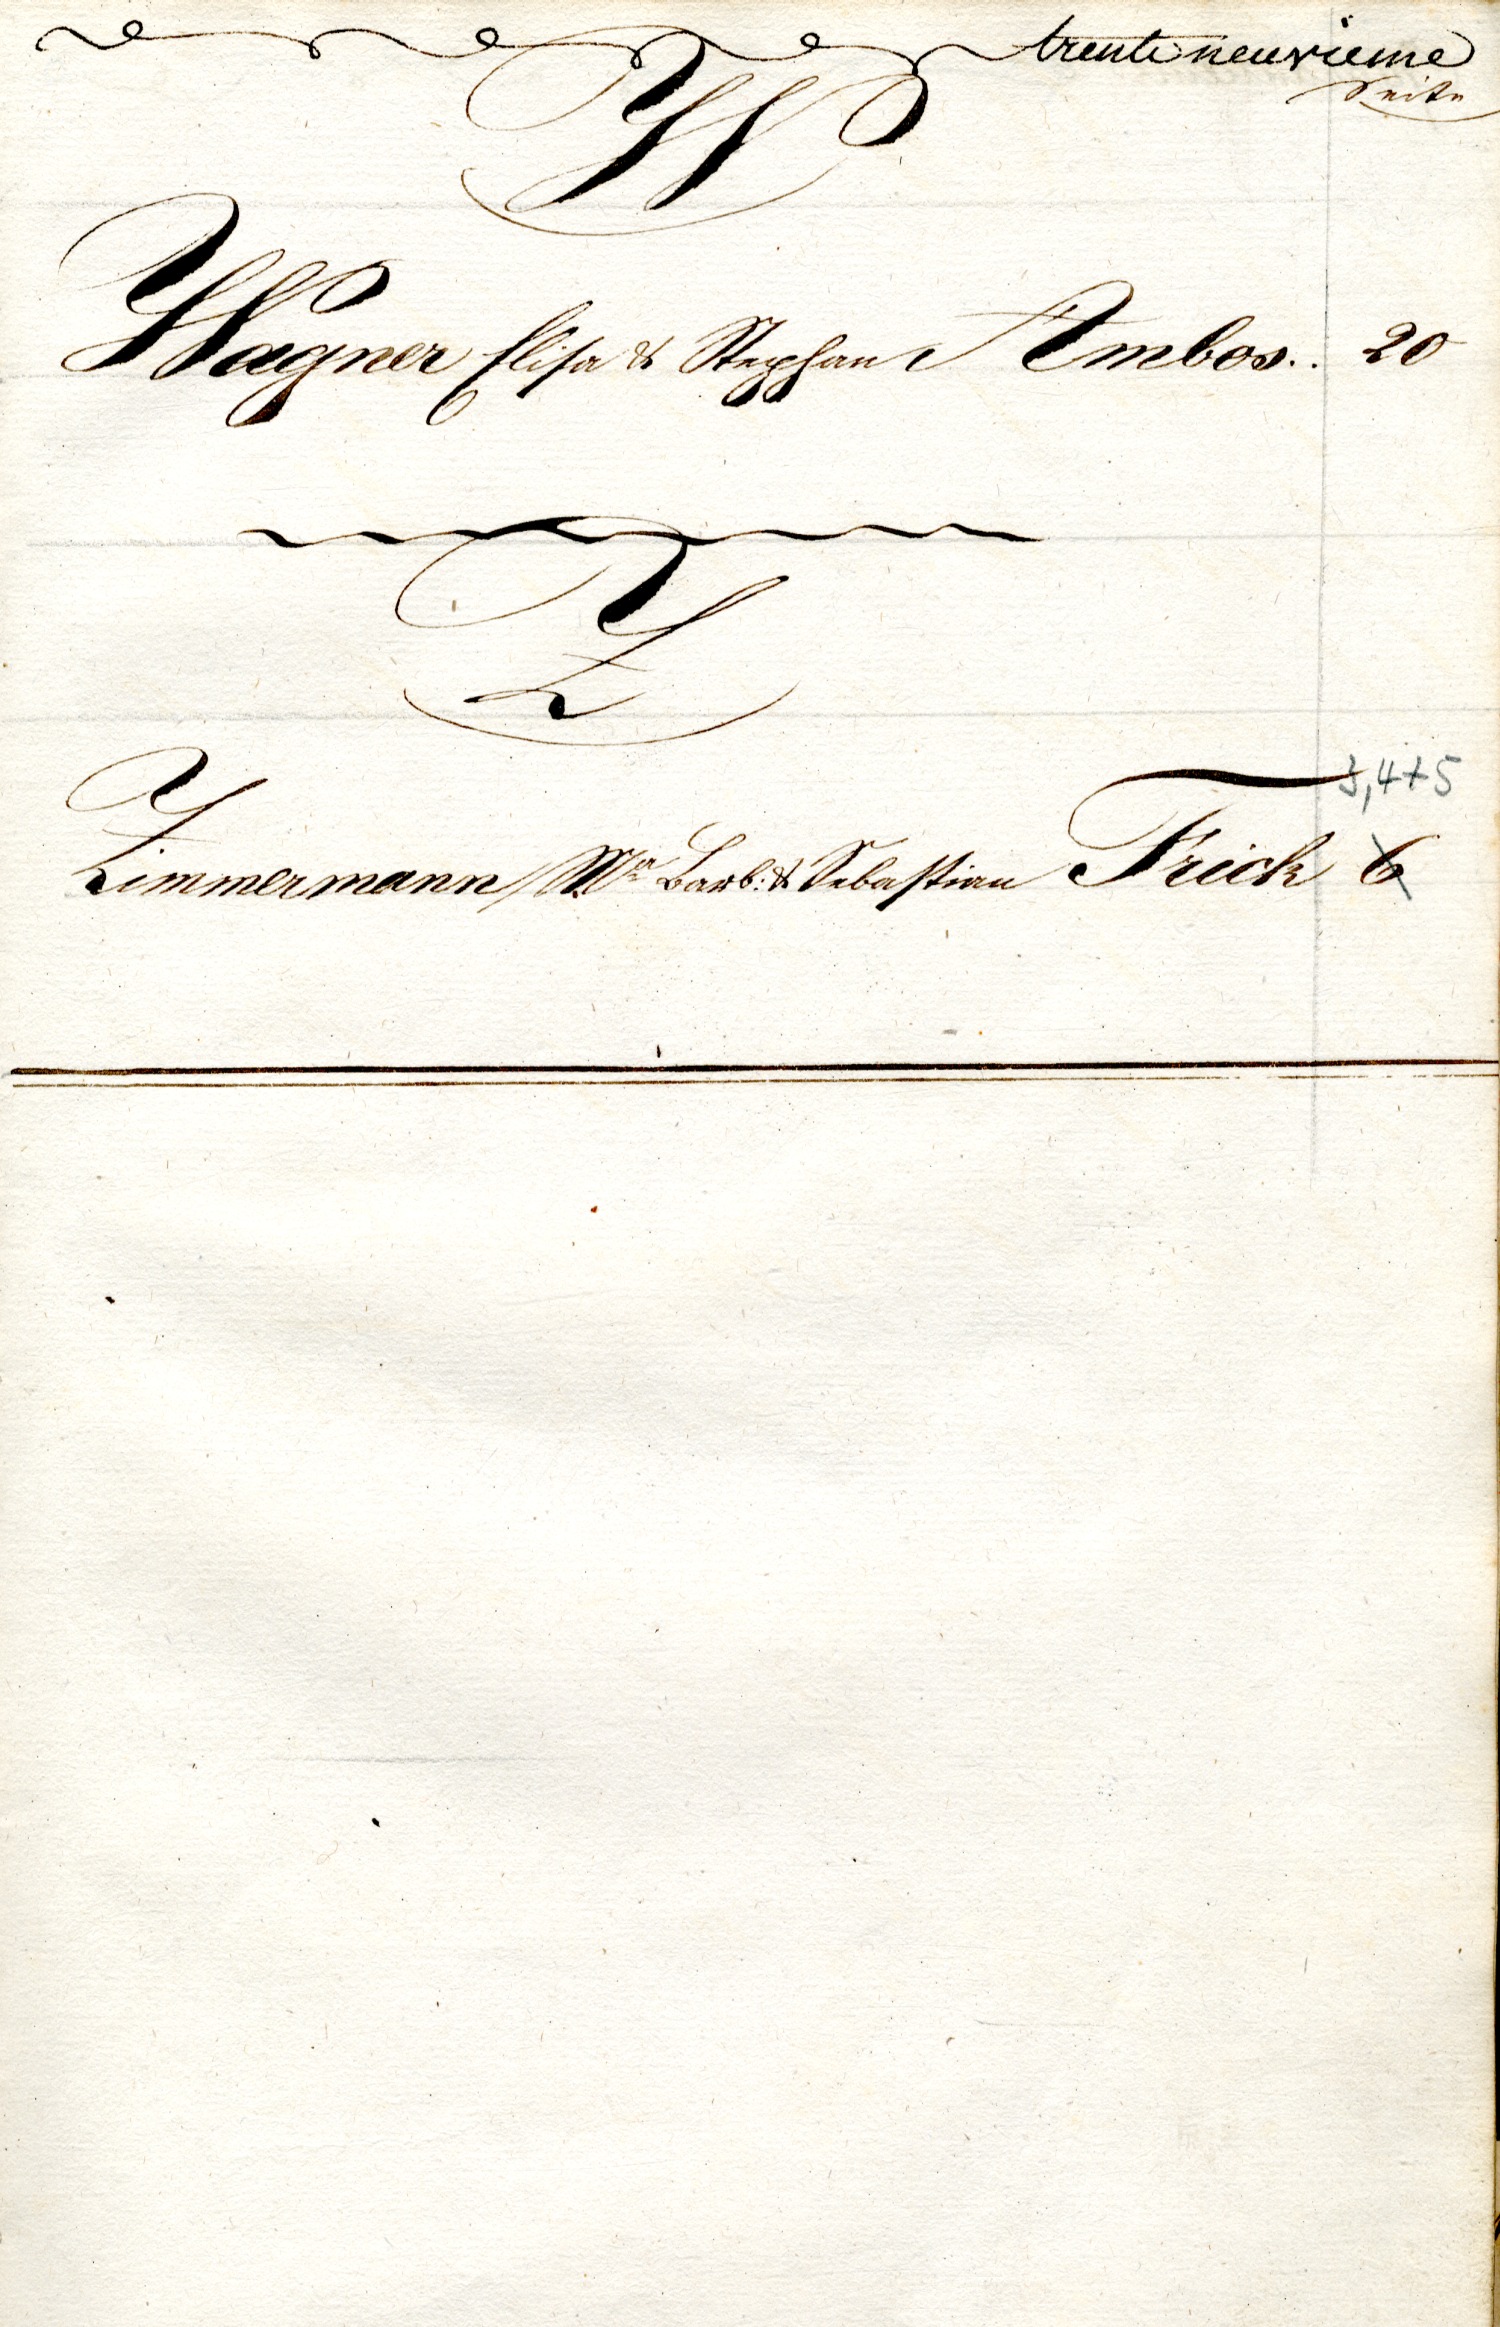 trente neuvieme
Seite
W
Wagner Elisa & Stephan Ambos.. 20
Z
3,4+5
Zimmermann Ma Barb: & Sebastian Frick 6